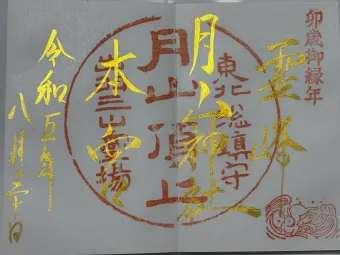 卯歳御縁年
霊峰
東北総鎮守
月山神社
月山頂上
本宮
出羽三山霊場
令和五年
八月二十日